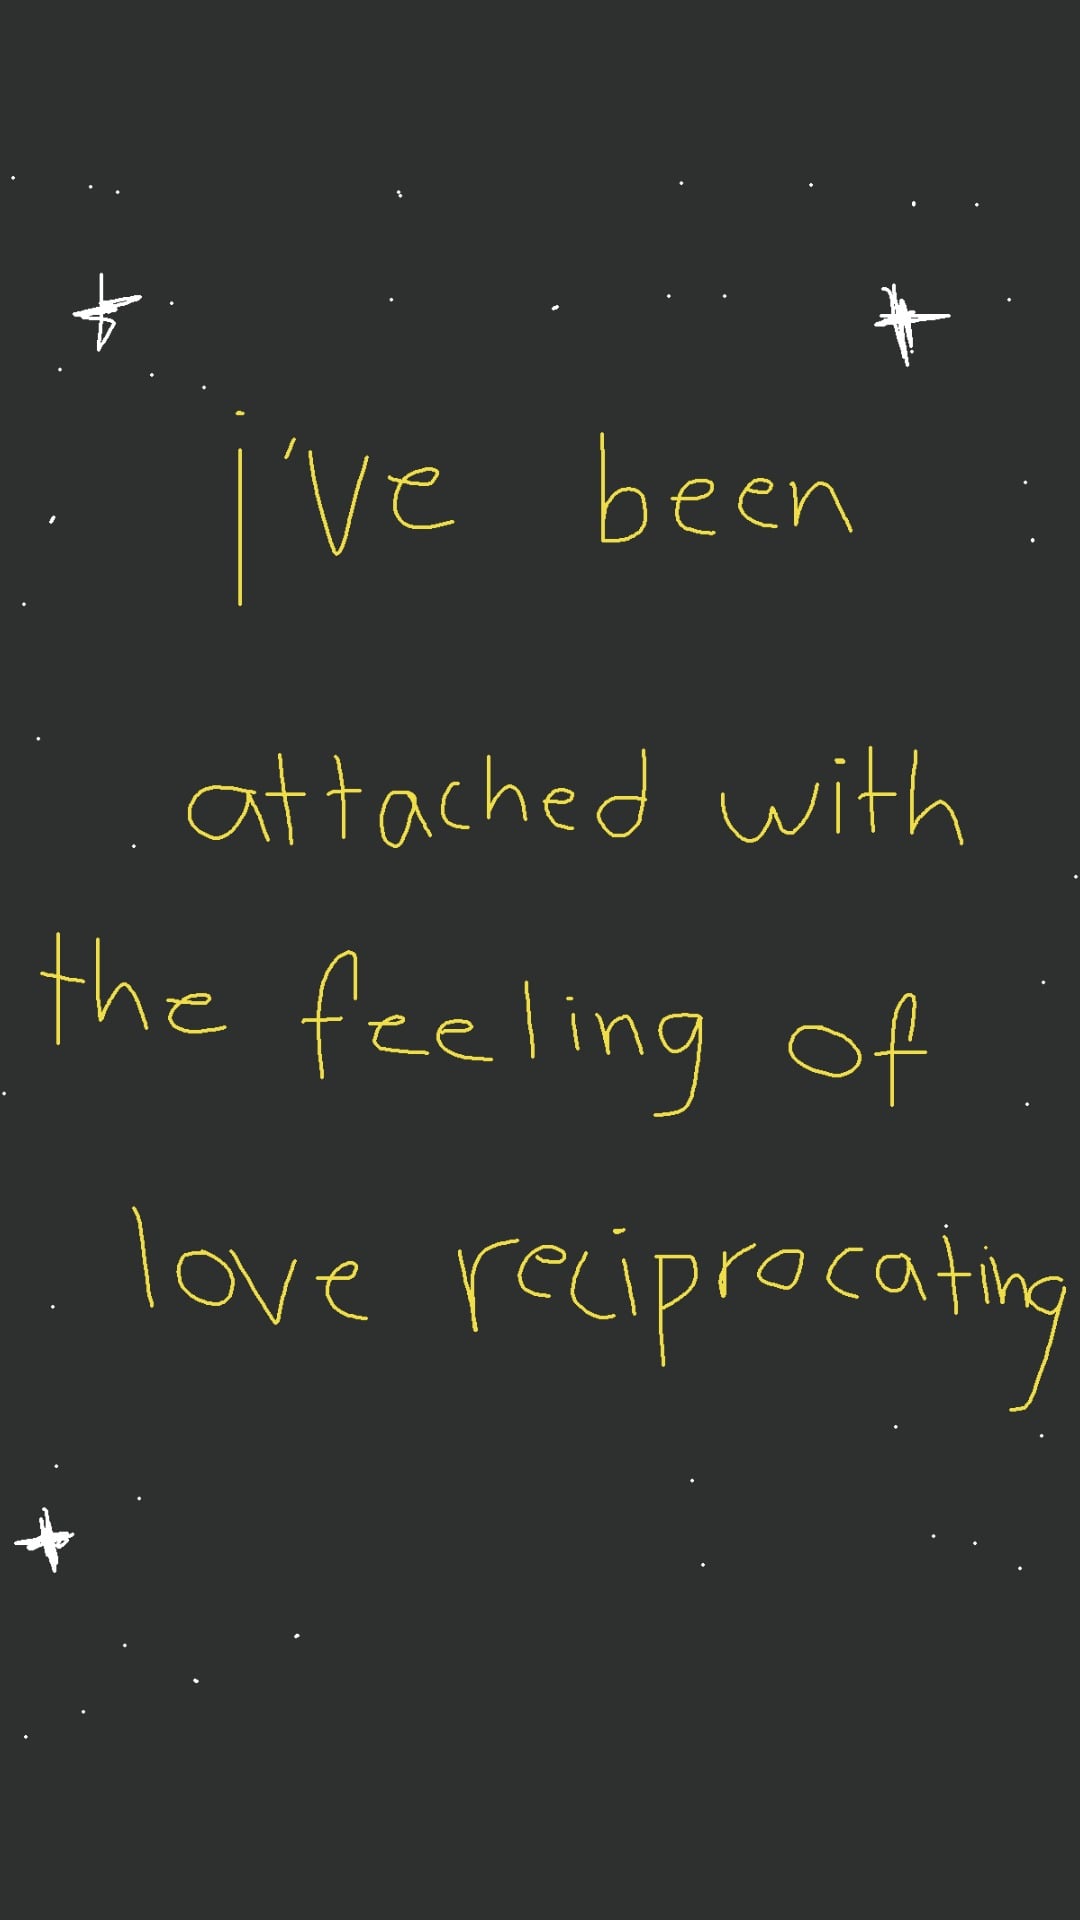 i've been
attached with
the feeling of
love reciprocating